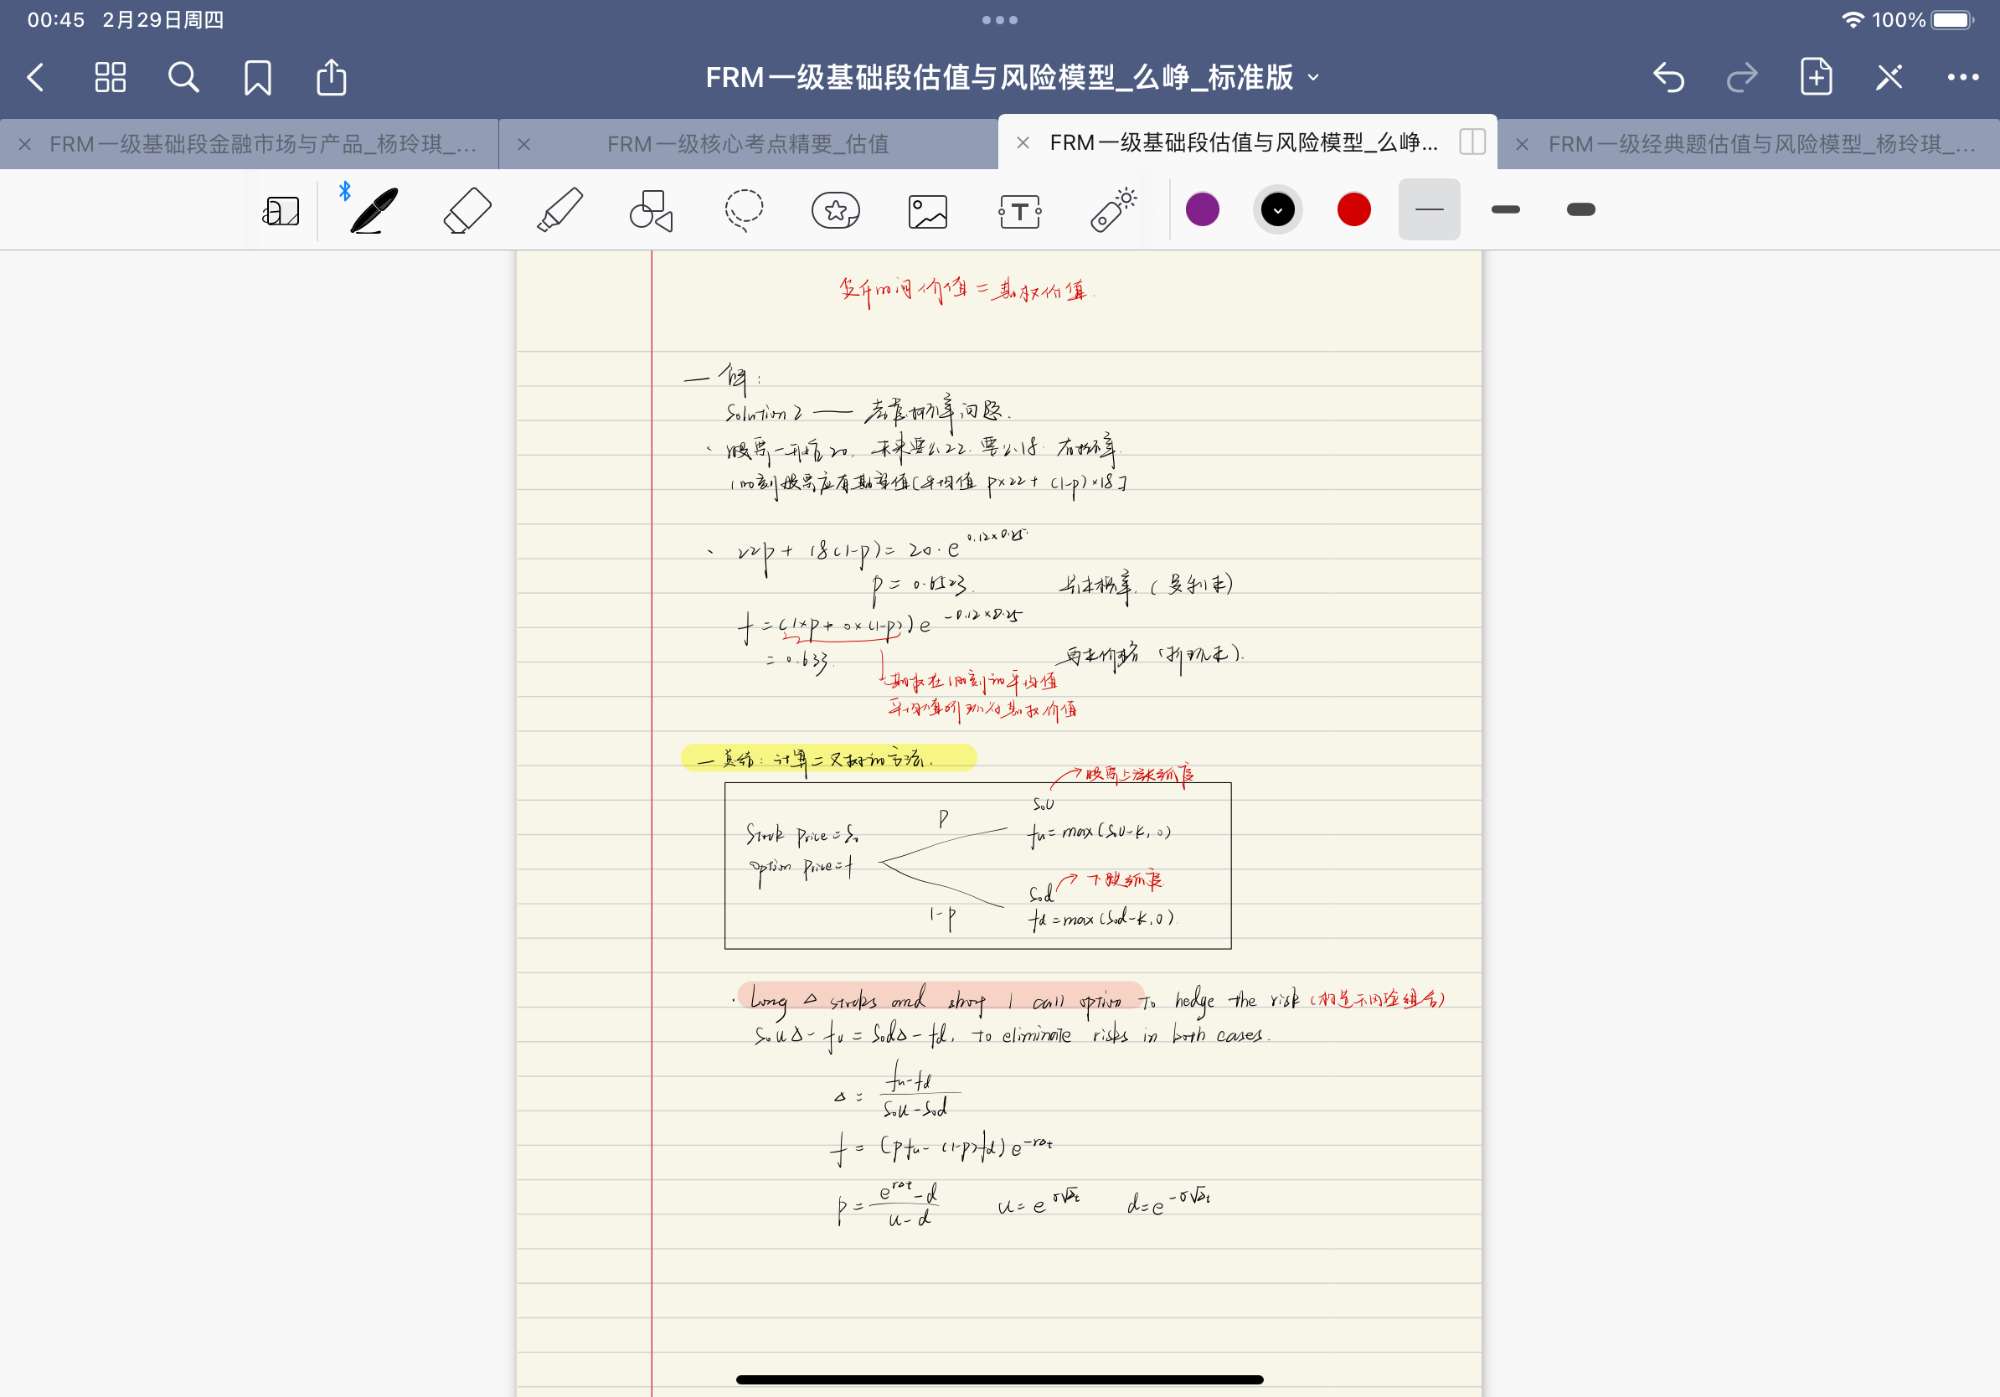 00:45 2月29日周四
100%
FRM一级基础段估值与风险模型_么峥_标准版
FRM一级基础段金融市场与产品_杨玲琪_...
FRM一级核心考点精要_估值
FRM一级基础段估值与风险模型_么峥...
FRM一级经典题估值与风险模型_杨玲琪_...
时间价值=期权价值.
一 解:
Solution 2 —— 考虑概率问题.
· 股票一开始20, 未来要么22, 要么18. 有概率.
时刻股票应有期望值[平均值 p×22 + (1-p)×18]
、 22p + 18(1-p) = 20·e^{0.12×0.25}
p = 0.6523. 先求概率.(复利求)
f = (1×p + 0×(1-p))e^{-0.12×0.25}
= 0.633. 再求价格 (折现求).
期权在1时刻的平均值
平均值折现为期权价值
一 总结: 计算二叉树的方法.
股票上涨幅度
S₀u
p
Stock price = S₀
fu = max(S₀u-K, 0)
option price = f
下跌幅度
S₀d
1-p
fd = max(S₀d-K, 0).
· Long Δ stocks and short 1 call option to hedge the risk (构造无风险组合)
S₀uΔ - fu = S₀dΔ - fd, to eliminate risks in both cases.
Δ = (fu-fd)/(S₀u-S₀d)
f = (pfu - (1-p)fd)e^{-rΔt}
p = (e^{rΔt}-d)/(u-d) u = e^{σ√Δt} d = e^{-σ√Δt}